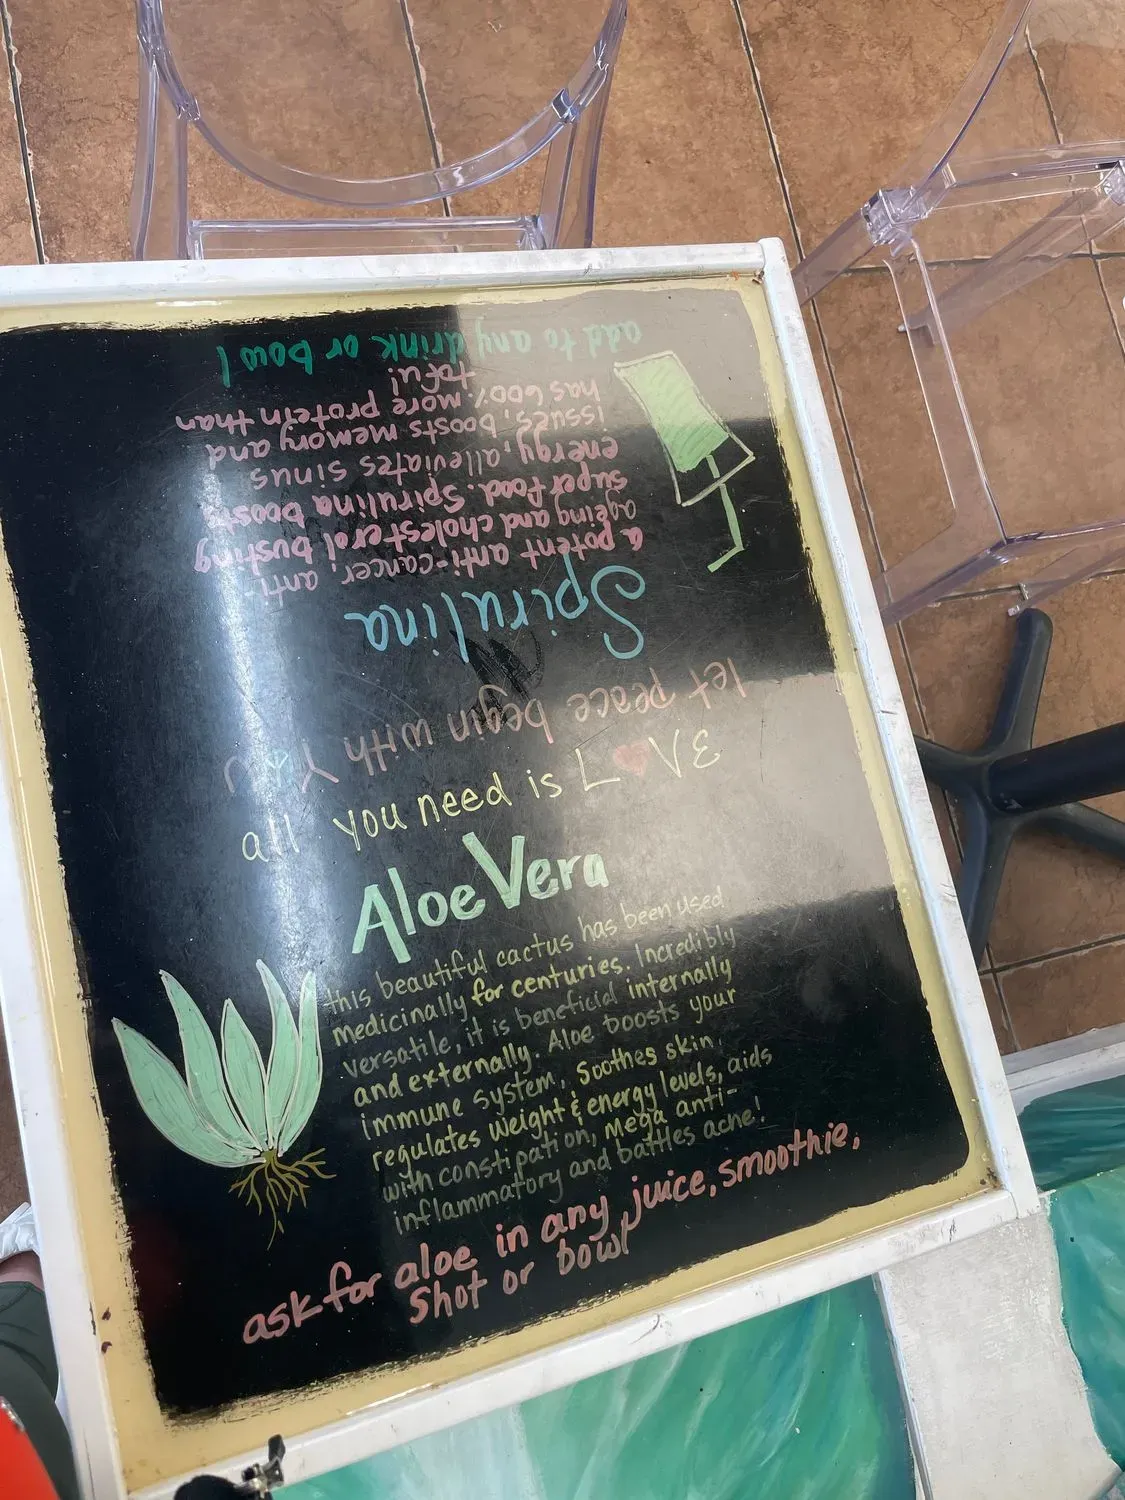 all you need is LOVE
Aloe Vera
this beautiful cactus has been used
medicinally for centuries. Incredibly
versatile, it is beneficial internally
and externally. Aloe boosts your
immune system, soothes skin,
regulates weight & energy levels, aids
with constipation, mega anti-
inflammatory and battles acne!
ask for aloe in any juice, smoothie,
shot or bowl
let peace begin with YOU
Spirulina
a potent anti-cancer, anti-
ageing and cholesterol busting
superfood. Spirulina boosts
energy, alleviates sinus
issues, boosts memory and
has 600% more protein than
tofu!
add to any drink or bowl